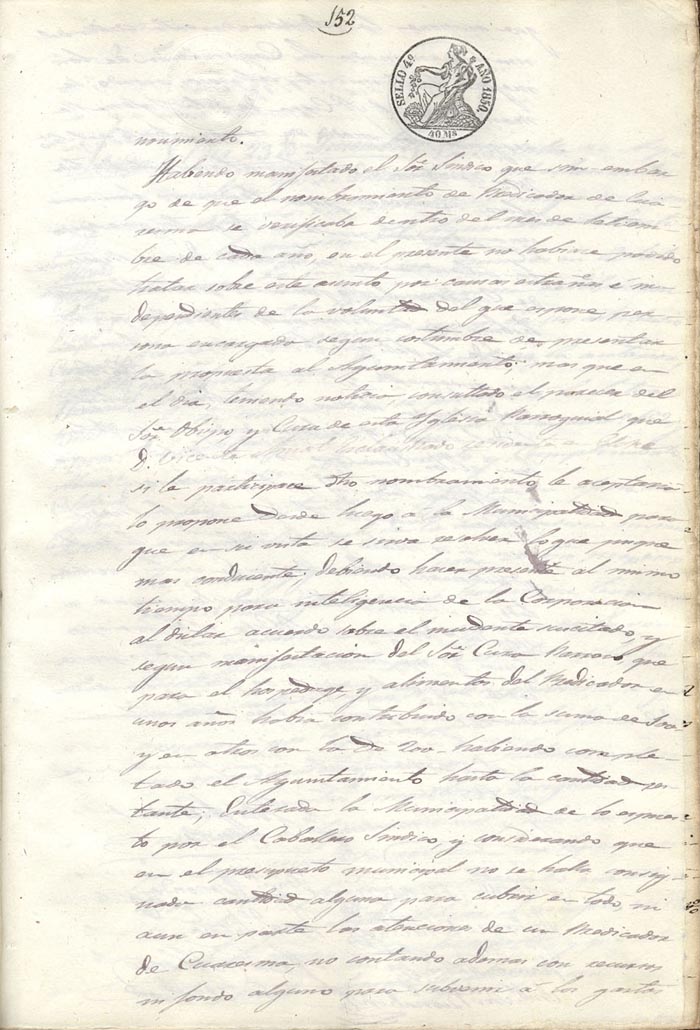 152
SELLO 4º AÑO 1850.
40 Ms
nocimiento.
Habiendo manifestado el Sor. Sindico que sin embar
go de que el nombramiento de Predicador de Cua
resma se verificaba dentro del mes de Setiem
bre de cada año, en el presente no habia podido
tratar sobre este asunto por causas estrañas é in
dependientes de la voluntad del que espone, per
sona encargada segun costumbre de presentar
la propuesta al Ayuntamiento; mas que en
el dia, teniendo noticia consultado el parecer del
Sor. Obispo y Cura de esta Yglesia Parroquial que
D.
si le participare dho nombramiento le aceptaria
lo propone desde luego a la Municipalidad para
que en su vista se sirva resolver lo que juzgue
mas conducente; debiendo hacer presente al mismo
tiempo para inteligencia de la Corporacion
al dictar acuerdo sobre el incidente suscitado, y
segun manifestacion del Sor. Cura Parroco que
para el hospedage y alimentos del Predicador en
unos años habia contribuido con la suma de
y en otros con la de 200 habiendo comple
tado el Ayuntamiento hasta la cantidad res
tante; Enterada la Municipalidad de lo espues
to por el Caballero Sindico, y considerando que
en el presupuesto municipal no se halla consig
nada cantidad alguna para cubrir en todo, ni
aun en parte las atenciones de un Predicador
de Cuaresma, no contando ademas con recursos
ni fondo alguno para subvenir á los gastos